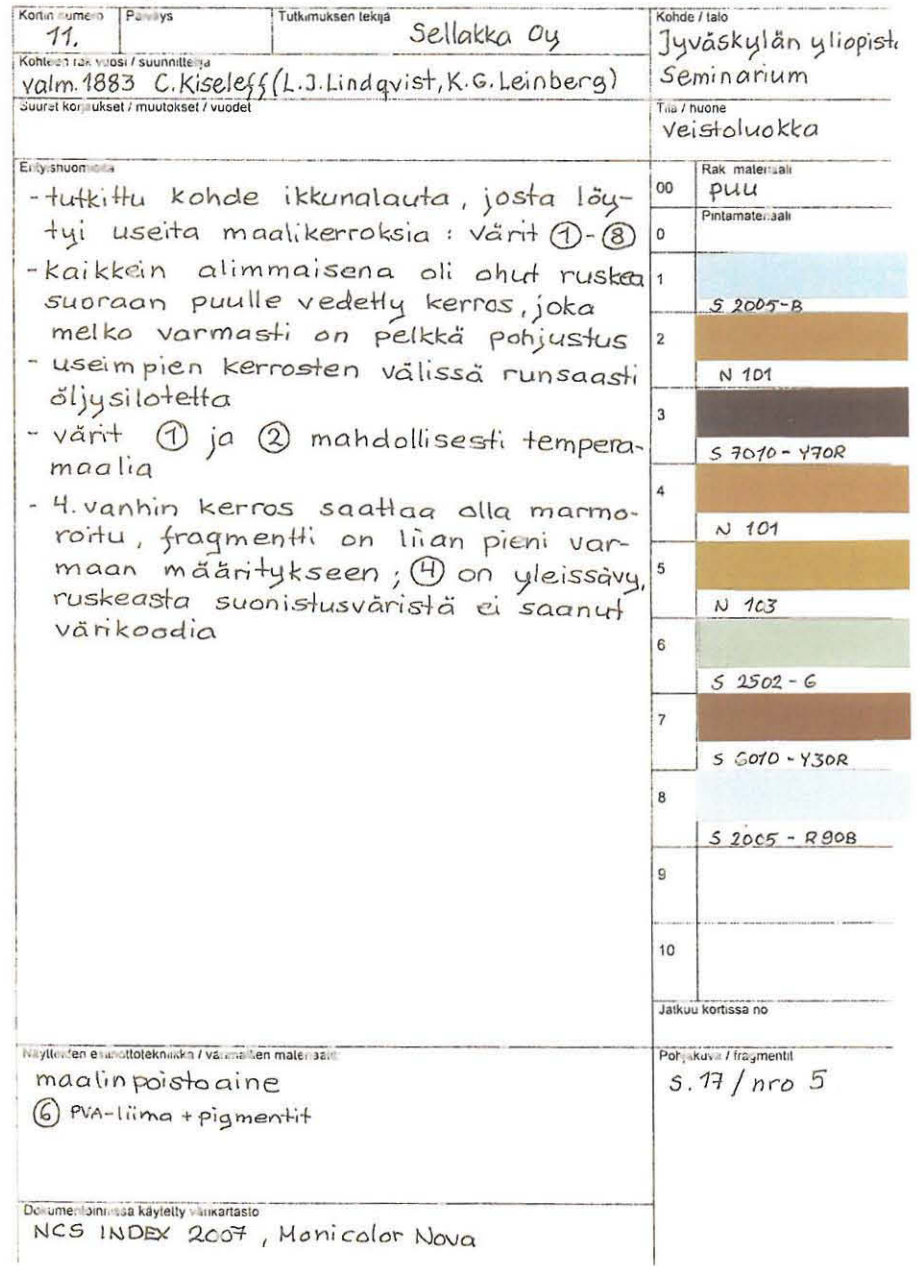 Kortin numero
11.
Päiväys
Tutkimuksen tekijä
Sellakka Oy
Kohde / talo
Jyväskylän yliopist
Seminarium
Kohteen rak vuosi / suunnittelija
valm. 1883 C. Kiseleff (L.J. Lindqvist, K.G. Leinberg)
Suuret korjaukset / muutokset / vuodet
Tila / huone
veistoluokka
Erityishuomioita
- tutkittu kohde ikkunalauta, josta löy-
tyi useita maalikerroksia : värit ①-⑧
- kaikkein alimmaisena oli ohut ruskea
suoraan puulle vedetty kerros, joka
melko varmasti on pelkkä pohjustus
- useimpien kerrosten välissä runsaasti
öljysilotetta
- värit ① ja ② mahdollisesti tempera-
maalia
- 4. vanhin kerros saattaa olla marmo-
roitu, fragmentti on liian pieni var-
maan määritykseen ; ④ on yleissävy,
ruskeasta suonistusväristä ei saanut
värikoodia
00 Rak materiaali
puu
0 Pintamateriaali
1
S 2005-B
2
N 101
3
S 7010 - Y70R
4
N 101
5
N 103
6
S 2502 - G
7
S 6010 - Y30R
8
S 2005 - R90B
9
10
Jatkuu kortissa no
Näytteiden esiinottotekniikka / värimallien materiaalit
maalinpoistoaine
⑥ PVA-liima + pigmentit
Pohjakuva / fragmentit
s. 17 / nro 5
Dokumentoinnissa käytetty värikartasto
NCS INDEX 2007, Monicolor Nova